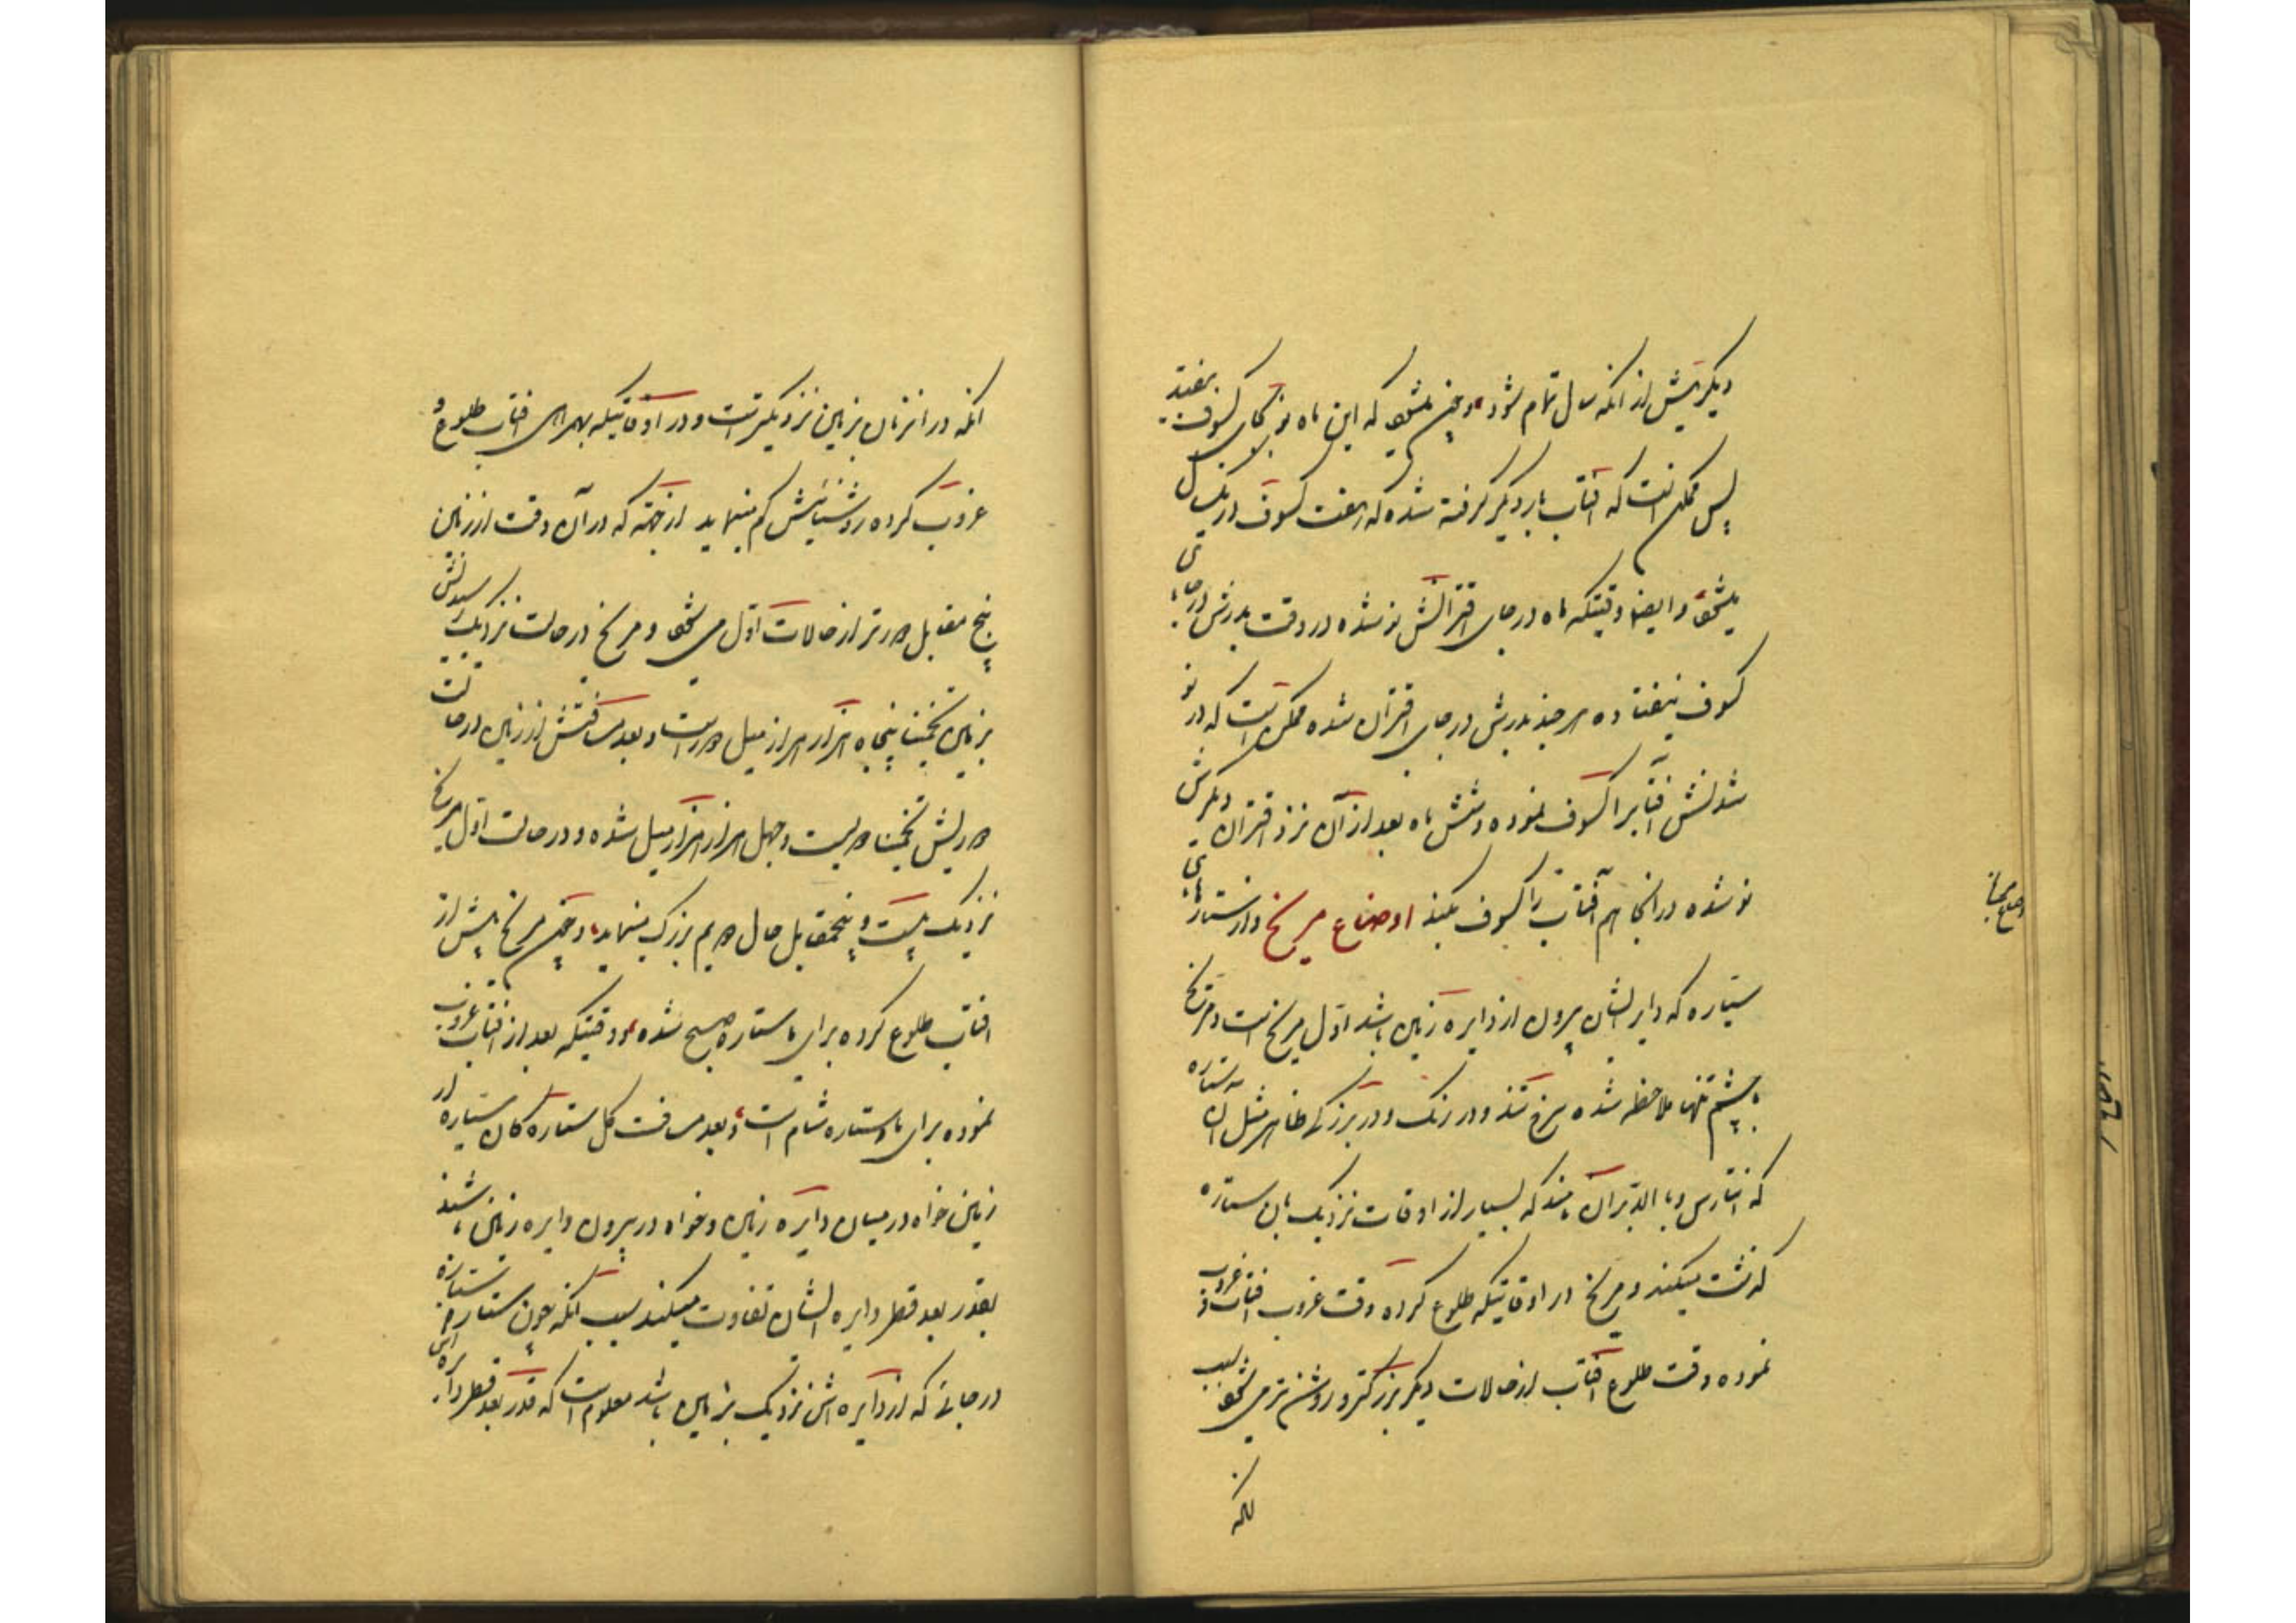 دیگر پیش از انکه سال تمام شود و چون میشود که این ماه نو بجای کسوف بیفتد
پس ممکن است که آفتاب بار دیگر گرفته شده که هفت کسوف در یک سال
میشود و ایضا وقتیکه ماه در جای اقترانش نو شده در وقت بدرش در جای
کسوف نیفتاده هر چند بدرش در جای اقتران شده ممکن است که در نو
شدنش آفتابرا کسوف نموده و شش ماه بعد از آن نزد اقتران دیگرش
نو شده در انجا هم آفتاب را کسوف بکند اوضاع مریخ و از ستارهای
سیاره که دایر ایشان بیرون از دایره زمین باشد اول مریخ است و مریخ
بچشم تنها ملاحظه شده سرخ تند و در رنگ و در بزرگی ظاهر مثل آن سه ستاره
که انتارس و یا الدبران مینامند که بسیار از اوقات نزدیک بان ستاره
گذشت میکند و مریخ در اوقاتیکه طلوع کرده وقت غروب آفتاب و غروب
نموده وقت طلوع آفتاب از حالات دیگر بزرگتر و روشن تر میشود بسبب
انکه
انکه در انزمان بزمین نزدیکتر است و در اوقاتیکه بهمراهی افتاب طلوع و
غروب کرده روشنیائیش کم مینماید از جهته که در آن وقت از زمین
پنج مقابل دورتر از حالات اول میشود و مریخ در حالت نزدیک رسیدنش
بزمین تخمینا پنجاه هزار هزار میل دور است و بعد مسافتش از زمین در حالت
دوریش تخمینا دویست و چهل هزار هزار میل شده و در حالت اول مریخ
نزدیک بیست و پنجمقابل حال دویم بزرگ مینماید و چون مریخ پیش از
افتاب طلوع کرده برای ما ستاره صبح شده و وقتیکه بعد از افتاب غروب
نموده برای ما ستاره شام است و بعد مسافت کل ستاره کان سیاره از
زمین خواه در میان دایره زمین و خواه در بیرون دایره زمین باشند
بقدر بعد قطر دایره ایشان تفاوت میکند بسبب انکه چون ستاره
در جائی که از دایره اش نزدیک بزمین باشد معلوم است که قدر بعد قطر دایره اش